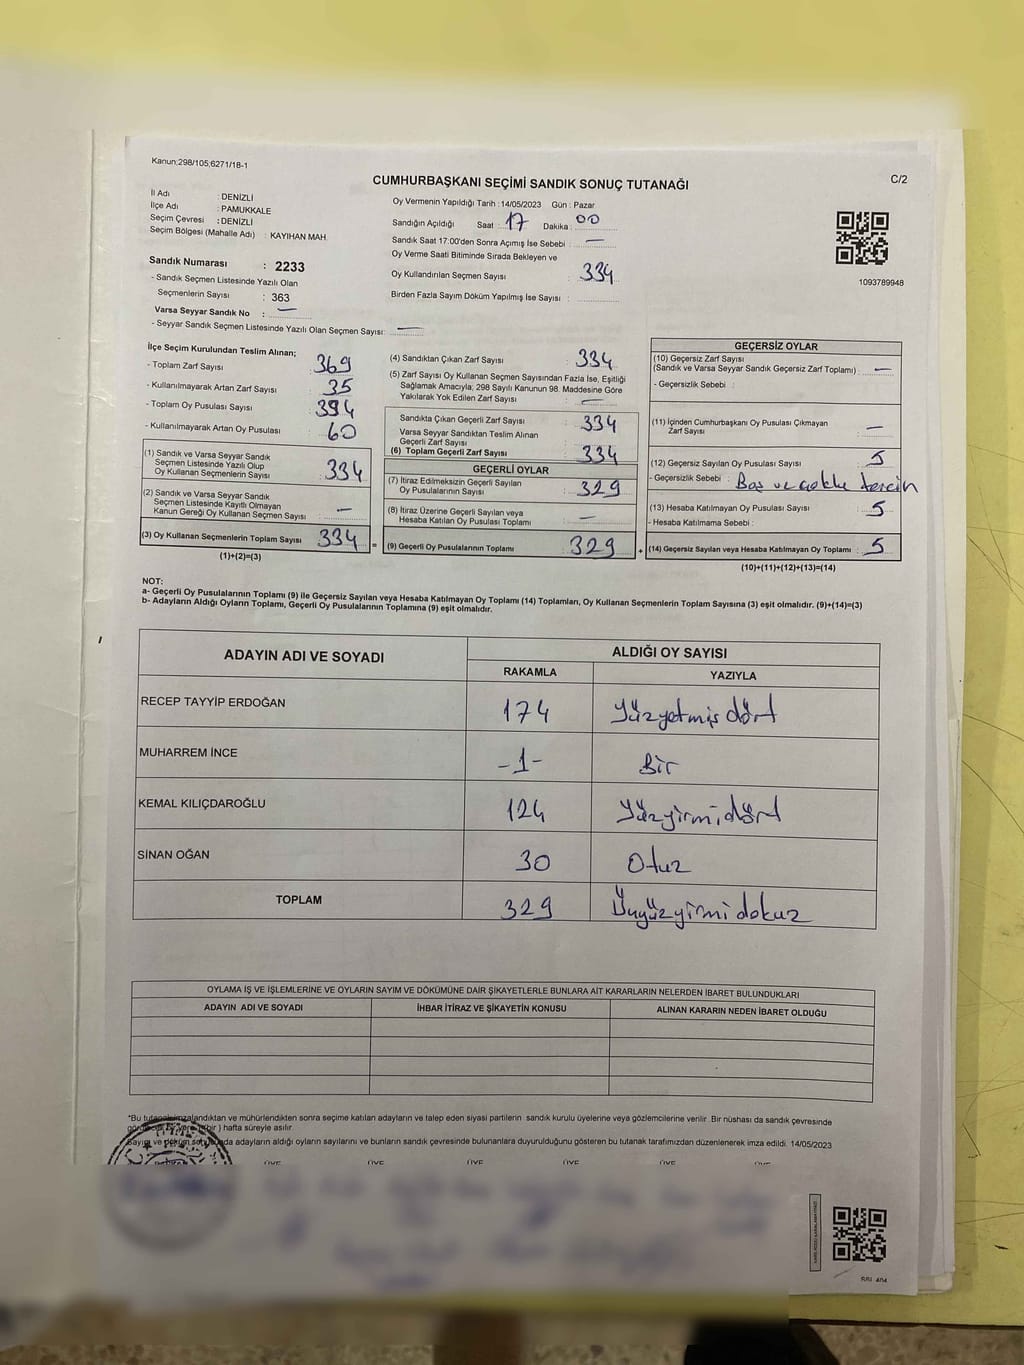 Kanun;298/105;6271/18-1
CUMHURBAŞKANI SEÇİMİ SANDIK SONUÇ TUTANAĞI
C/2
İl Adı : DENİZLİ
İlçe Adı : PAMUKKALE
Seçim Çevresi : DENİZLİ
Seçim Bölgesi (Mahalle Adı) : KAYIHAN MAH.
Sandık Numarası : 2233
- Sandık Seçmen Listesinde Yazılı Olan
Seçmenlerin Sayısı : 363
Varsa Seyyar Sandık No : —
- Seyyar Sandık Seçmen Listesinde Yazılı Olan Seçmen Sayısı: —
Oy Vermenin Yapıldığı Tarih : 14/05/2023 Gün : Pazar
Sandığın Açıldığı Saat : 17 Dakika : 00
Sandık Saat 17:00'den Sonra Açımış İse Sebebi : —
Oy Verme Saati Bitiminde Sırada Bekleyen ve
Oy Kullandırılan Seçmen Sayısı : 334
Birden Fazla Sayım Döküm Yapılmış İse Sayısı :
1093789948
İlçe Seçim Kurulundan Teslim Alınan;
- Toplam Zarf Sayısı : 369
- Kullanılmayarak Artan Zarf Sayısı : 35
- Toplam Oy Pusulası Sayısı : 394
- Kullanılmayarak Artan Oy Pusulası : 60
(1) Sandık ve Varsa Seyyar Sandık
Seçmen Listesinde Yazılı Olup
Oy Kullanan Seçmenlerin Sayısı : 334
(2) Sandık ve Varsa Seyyar Sandık
Seçmen Listesinde Kayıtlı Olmayan
Kanun Gereği Oy Kullanan Seçmen Sayısı : —
(3) Oy Kullanan Seçmenlerin Toplam Sayısı : 334
(1)+(2)=(3)
(4) Sandıktan Çıkan Zarf Sayısı : 334
(5) Zarf Sayısı Oy Kullanan Seçmen Sayısından Fazla İse, Eşitliği
Sağlamak Amacıyla; 298 Sayılı Kanunun 98. Maddesine Göre
Yakılarak Yok Edilen Zarf Sayısı : —
Sandıkta Çıkan Geçerli Zarf Sayısı : 334
Varsa Seyyar Sandıktan Teslim Alınan
Geçerli Zarf Sayısı :
(6) Toplam Geçerli Zarf Sayısı : 334
GEÇERLİ OYLAR
(7) İtiraz Edilmeksizin Geçerli Sayılan
Oy Pusulalarının Sayısı : 329
(8) İtiraz Üzerine Geçerli Sayılan veya
Hesaba Katılan Oy Pusulası Toplamı : —
= (9) Geçerli Oy Pusulalarının Toplamı : 329
GEÇERSİZ OYLAR
(10) Geçersiz Zarf Sayısı
(Sandık ve Varsa Seyyar Sandık Geçersiz Zarf Toplamı) : —
- Geçersizlik Sebebi :
(11) İçinden Cumhurbaşkanı Oy Pusulası Çıkmayan
Zarf Sayısı : —
(12) Geçersiz Sayılan Oy Pusulası Sayısı : 5
- Geçersizlik Sebebi : Boş ve çoklu tercih
(13) Hesaba Katılmayan Oy Pusulası Sayısı : 5
- Hesaba Katılmama Sebebi :
+ (14) Geçersiz Sayılan veya Hesaba Katılmayan Oy Toplamı : 5
(10)+(11)+(12)+(13)=(14)
NOT:
a- Geçerli Oy Pusulalarının Toplamı (9) ile Geçersiz Sayılan veya Hesaba Katılmayan Oy Toplamı (14) Toplamları, Oy Kullanan Seçmenlerin Toplam Sayısına (3) eşit olmalıdır. (9)+(14)=(3)
b- Adayların Aldığı Oyların Toplamı, Geçerli Oy Pusulalarının Toplamına (9) eşit olmalıdır.
ADAYIN ADI VE SOYADI ALDIĞI OY SAYISI
RAKAMLA YAZIYLA
RECEP TAYYİP ERDOĞAN 174 Yüzyetmiş dört
MUHARREM İNCE -1- Bir
KEMAL KILIÇDAROĞLU 124 Yüzyirmidört
SİNAN OĞAN 30 Otuz
TOPLAM 329 Üçyüzyirmi dokuz
OYLAMA İŞ VE İŞLEMLERİNE VE OYLARIN SAYIM VE DÖKÜMÜNE DAİR ŞİKAYETLERLE BUNLARA AİT KARARLARIN NELERDEN İBARET BULUNDUKLARI
ADAYIN ADI VE SOYADI İHBAR İTİRAZ VE ŞİKAYETİN KONUSU ALINAN KARARIN NEDEN İBARET OLDUĞU
*Bu tutanak imzalandıktan ve mühürlendikten sonra seçime katılan adayların ve talep eden siyasi partilerin sandık kurulu üyelerine veya gözlemcilerine verilir. Bir nüshası da sandık çevresinde
bir ) hafta süreyle asılır.
Sayım ve döküm sonucunda adayların aldığı oyların sayılarını ve bunların sandık çevresinde bulunanlara duyurulduğunu gösteren bu tutanak tarafımızdan düzenlenerek imza edildi. 14/05/2023
ÜYE ÜYE ÜYE ÜYE ÜYE ÜYE